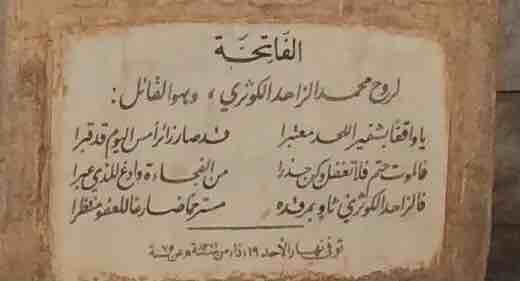 الفَاتِحَة
لروح محمد الزاهد الكوثري، وهو القائل:
يا واقفًا بشفير اللحد معتبرا قد صار زائر أمس اليوم قد قبرا
فالموت حتم فلا تغفل وكن حذرا من الفجاءة وادع للذي عبرا
فالزاهد الكوثري ثاو بمرقده مسترحمًا ضارعًا للعفو منتظرا
توفي نهار الأحد ١٩ ذا من سنة عن ٧٥ سنة